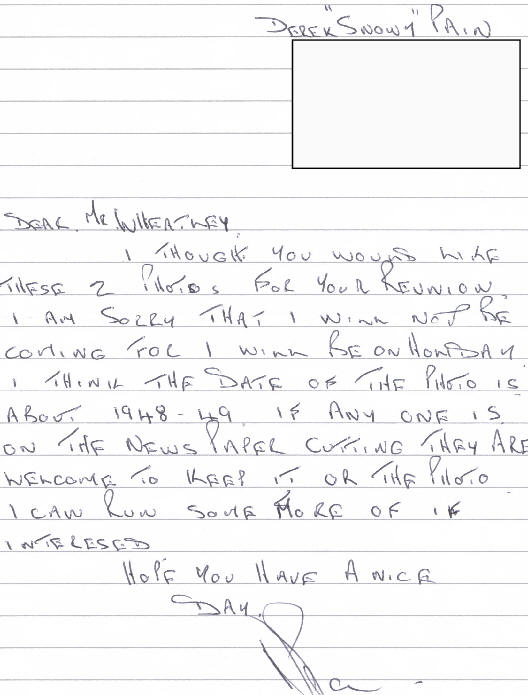 DEREK "SNOWY" PAIN
DEAR MR WHEATLEY.
I THOUGH YOU WOULD LIKE
THESE 2 PHOTOS FOR YOUR REUNION.
I AM SORRY THAT I WILL NOT BE
COMING FOR I WILL BE ON HOLIDAY
I THINK THE DATE OF THE PHOTO IS
ABOUT 1948-49. IF ANY ONE IS
ON THE NEWS PAPER CUTTING THEY ARE
WELCOME TO KEEP IT OR THE PHOTO
I CAN RUN SOME MORE OF IF
INTERESED
HOPE YOU HAVE A NICE
DAY.